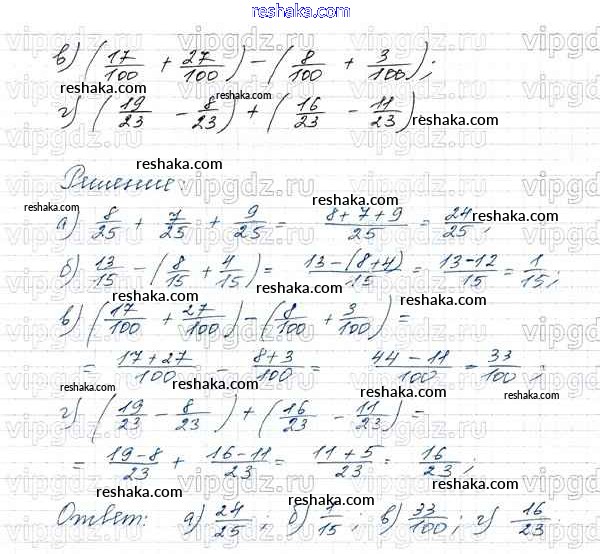 reshaka.com
в) (17/100 + 27/100) − (8/100 + 3/100);
г) (19/23 − 8/23) + (16/23 − 11/23)
Решение
а) 8/25 + 7/25 + 9/25 = (8+7+9)/25 = 24/25;
б) 13/15 − (8/15 + 4/15) = (13−(8+4))/15 = (13−12)/15 = 1/15;
в) (17/100 + 27/100) − (8/100 + 3/100) =
= (17+27)/100 − (8+3)/100 = (44−11)/100 = 33/100;
г) (19/23 − 8/23) + (16/23 − 11/23) =
= (19−8)/23 + (16−11)/23 = (11+5)/23 = 16/23;
Ответ: а) 24/25; б) 1/15; в) 33/100; г) 16/23.